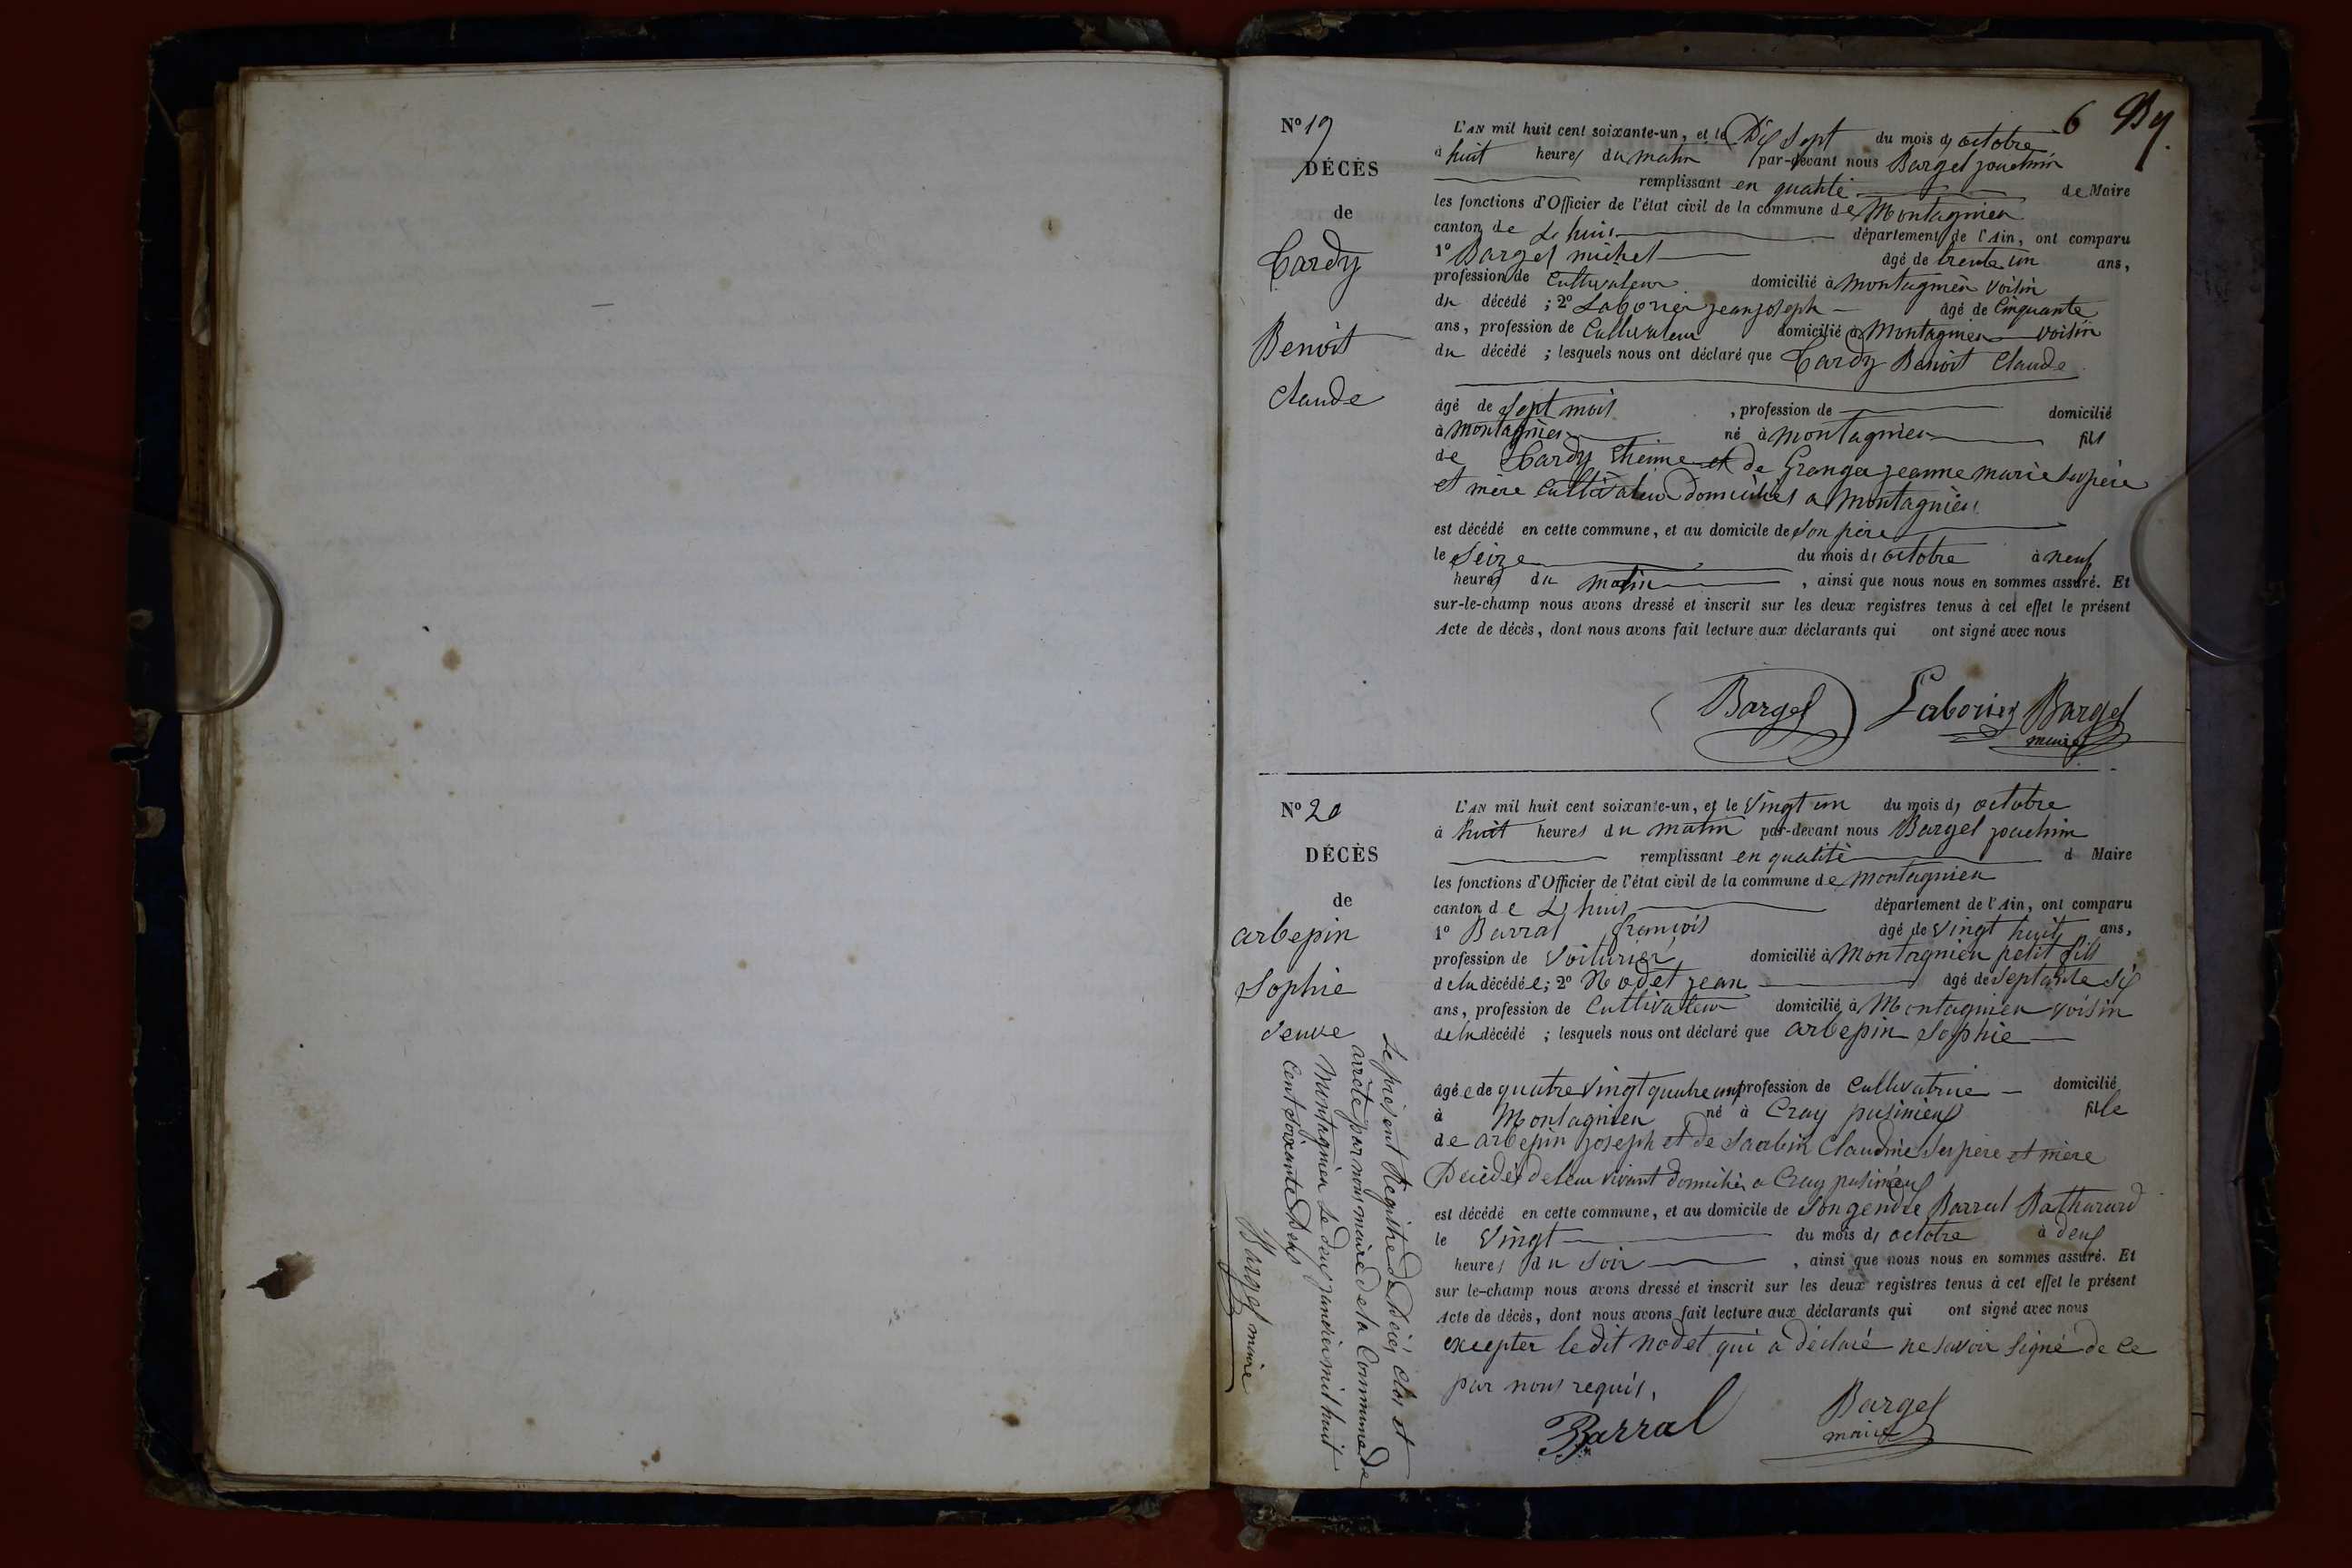 6 By.
N° 19
DÉCÈS
de
Cardy
Benoit
Claude
L'AN mil huit cent soixante-un, et le Dix Sept du mois d, octobre
à huit heures du matin par-devant nous Bargel joachim
remplissant en qualité de Maire
les fonctions d'Officier de l'état civil de la commune de Montagnieu
canton de Lhuis département de l'Ain, ont comparu
1° Bargel michel âgé de trente un ans,
profession de Cultivateur domicilié à Montagnieu voisin
du décédé ; 2° Laborier jean joseph âgé de Cinquante
ans, profession de Cultivateur domicilié à Montagnieu voisin
du décédé ; lesquels nous ont déclaré que Cardy Benoit Claude
âgé de Sept mois , profession de domicilié
à Montagnieu né à Montagnieu fils
de Cardy Etienne et de Granger jeanne marie ses père
et mère Cultivateur domiciliés a Montagnieu
est décédé en cette commune, et au domicile de Son père
le Seize du mois d, octobre à neuf
heures du matin , ainsi que nous nous en sommes assuré. Et
sur-le-champ nous avons dressé et inscrit sur les deux registres tenus à cet effet le présent
Acte de décès, dont nous avons fait lecture aux déclarants qui ont signé avec nous
Bargel Laborier Bargel
maire
N° 20
DÉCÈS
de
arbepin
Sophie
veuve
L'AN mil huit cent soixante-un, et le Vingt un du mois d, octobre
à huit heures du matin par-devant nous Bargel joachim
remplissant en qualité d Maire
les fonctions d'Officier de l'état civil de la commune de Montagnieu
canton de Lhuis département de l'Ain, ont comparu
1° Barral françois âgé de Vingt huit ans,
profession de Voiturier domicilié à Montagnieu petit fils
de la décédée ; 2° Nodet jean âgé de Septante Six
ans, profession de Cultivateur domicilié à Montagnieu voisin
de la décédé ; lesquels nous ont déclaré que arbepin Sophie
âgée de quatre Vingt quatre ans profession de Cultivatrice domicilié
à Montagnieu né à Cray pusinieux fille
de arbepin joseph et de Claudine Ses père et mère
Décédés de leur vivant domiciliés a Cray pusinieux
est décédé en cette commune, et au domicile de Son gendre Barral
le Vingt du mois d, octobre à deux
heures du Soir , ainsi que nous nous en sommes assuré. Et
sur le-champ nous avons dressé et inscrit sur les deux registres tenus à cet effet le présent
Acte de décès, dont nous avons fait lecture aux déclarants qui ont signé avec nous
excepter le dit nodet qui a déclaré ne savoir signé de ce
par nous requis,
Barral Bargel
maire
Le présent Registre de Décés clos et
arrêté par nous maire de la Commune de
Montagnieu le deux janvier mil huit
Cent Soixante Deux
Bargel maire